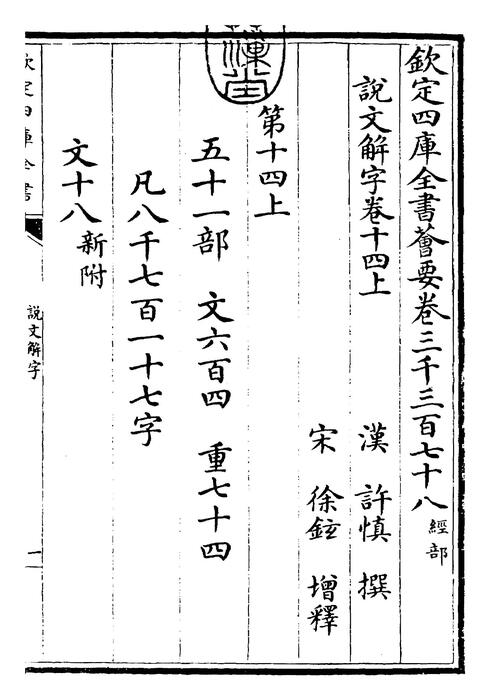 欽定四庫全書薈要卷三千三百七十八 經部
說文解字卷十四上
漢 許慎 撰
宋 徐鉉 增釋
第十四上
五十一部 文六百四 重七十四
凡八千七百一十七字
文十八新附
欽定四庫全書
說文解字
一